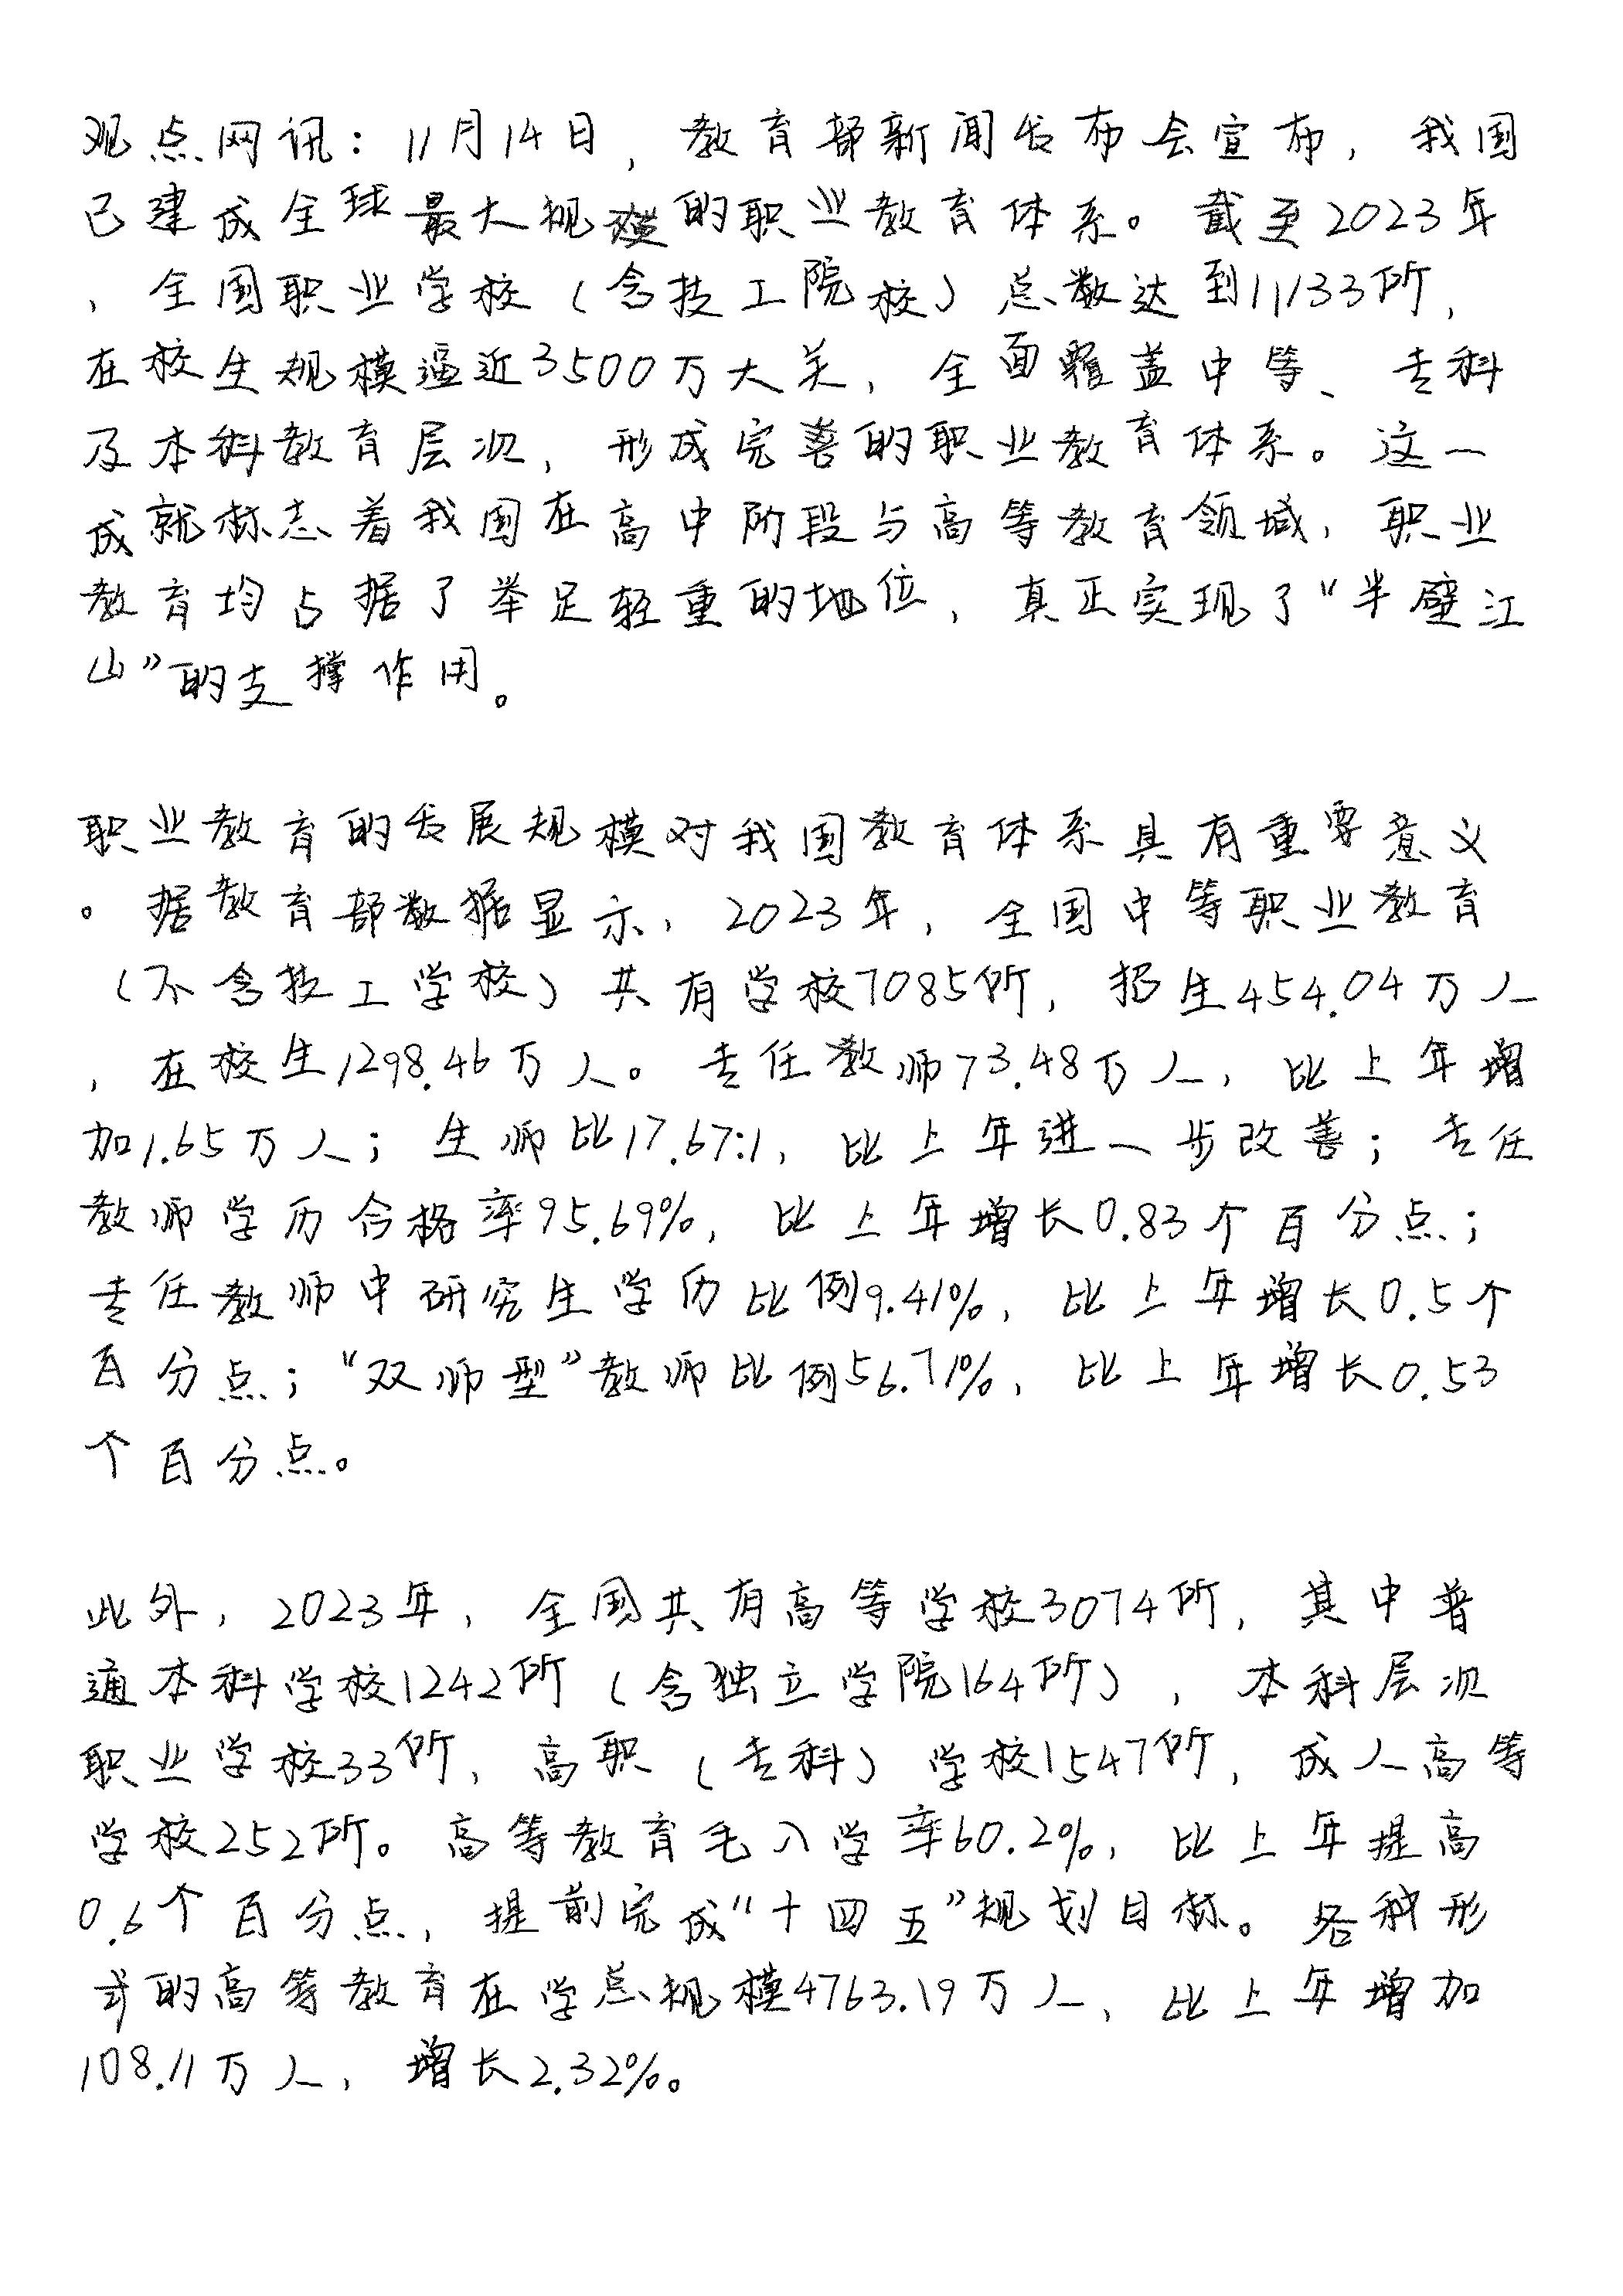 观点网讯：11月14日，教育部新闻发布会宣布，我国
已建成全球最大规模的职业教育体系。截至2023年
，全国职业学校（含技工院校）总数达到11133所，
在校生规模逼近3500万大关，全面覆盖中等、专科
及本科教育层次，形成完善的职业教育体系。这一
成就标志着我国在高中阶段与高等教育领域，职业
教育均占据了举足轻重的地位，真正实现了“半壁江
山”的支撑作用。
职业教育的发展规模对我国教育体系具有重要意义
。据教育部数据显示，2023年，全国中等职业教育
（不含技工学校）共有学校7085所，招生454.04万人
，在校生1298.46万人。专任教师73.48万人，比上年增
加1.65万人；生师比17.67:1，比上年进一步改善；专任
教师学历合格率95.69%，比上年增长0.83个百分点；
专任教师中研究生学历比例9.41%，比上年增长0.5个
百分点；“双师型”教师比例56.71%，比上年增长0.53
个百分点。
此外，2023年，全国共有高等学校3074所，其中普
通本科学校1242所（含独立学院164所），本科层次
职业学校33所，高职（专科）学校1547所，成人高等
学校252所。高等教育毛入学率60.2%，比上年提高
0.6个百分点，提前完成“十四五”规划目标。各种形
式的高等教育在学总规模4763.19万人，比上年增加
108.11万人，增长2.32%。